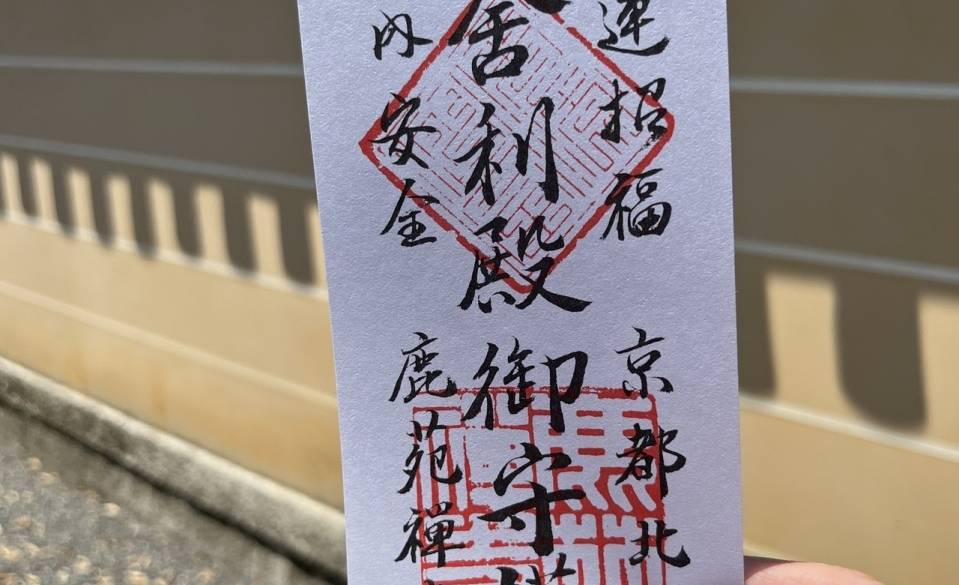 運招福
京都北
舍利殿
御守
内安全
鹿苑禅